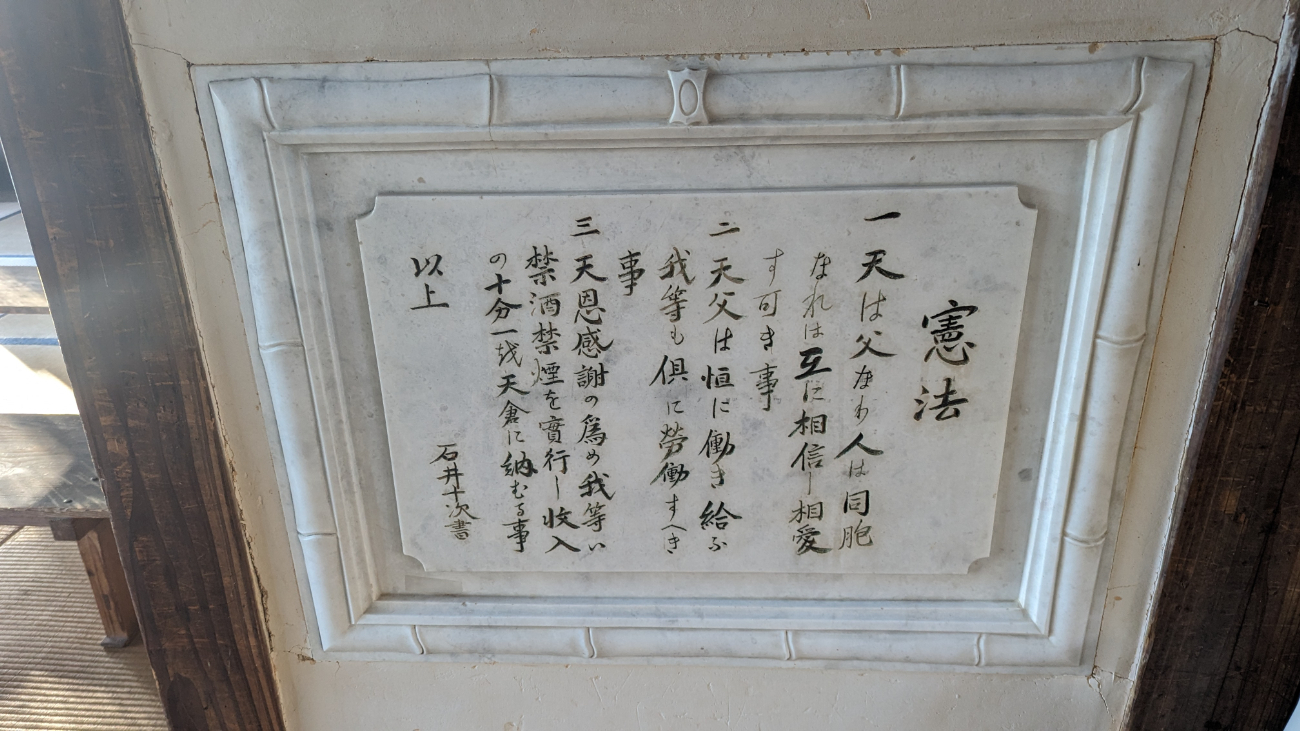 憲法
一 天は父なり人は同胞
なれは互に相信し相愛
す可き事
二 天父は恒に働き給ふ
我等も俱に勞働すへき
事
三 天恩感謝の爲め我等ハ
禁酒禁煙を實行し收入
の十分一を天倉に納むる事
以上
石井十次書